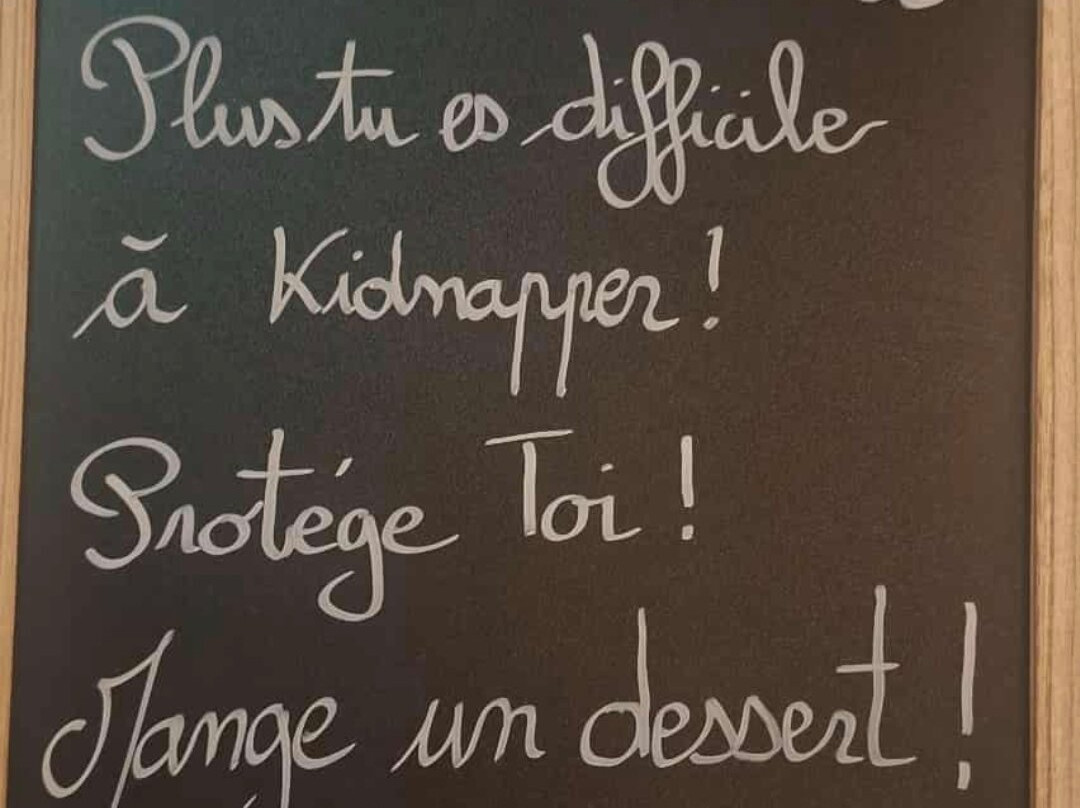 Plus tu es difficile
à Kidnapper !
Protége Toi !
Mange un dessert !